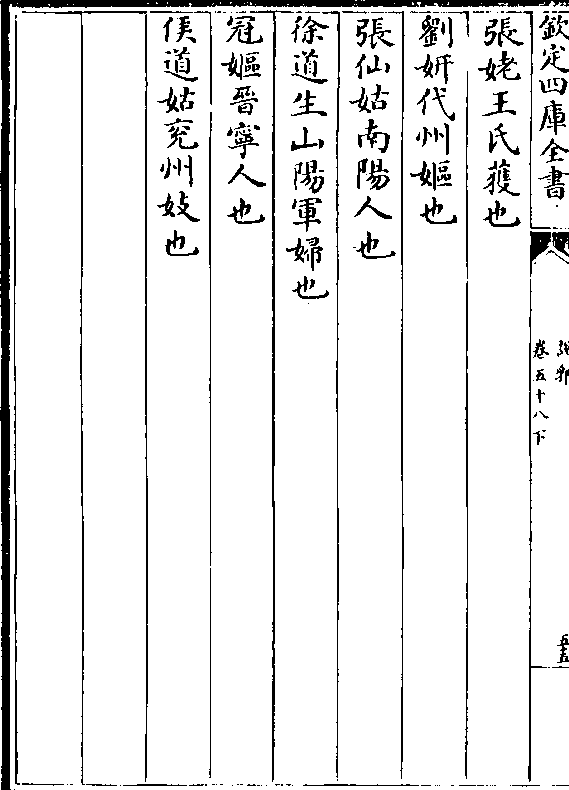 欽定四庫全書
說郛
卷五十八下
張姥王氏蒦也
劉妍代州嫗也
張仙姑南陽人也
徐道生山陽軍婦也
冦嫗晉寧人也
侯道姑兖州妓也